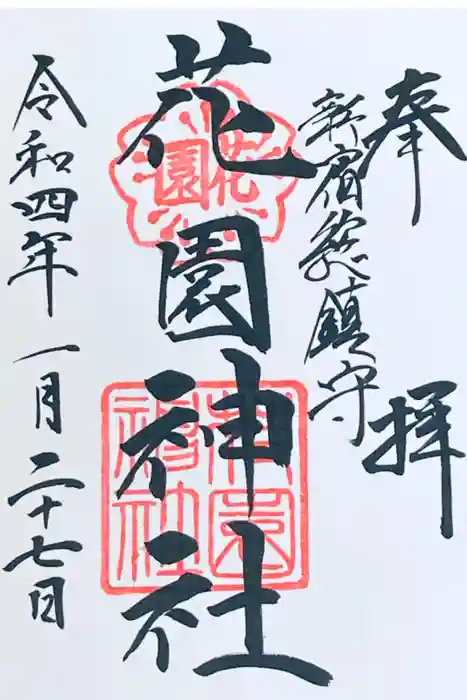 奉拝
新宿総鎮守
花園神社
花園
花園神社
令和四年一月二十七日